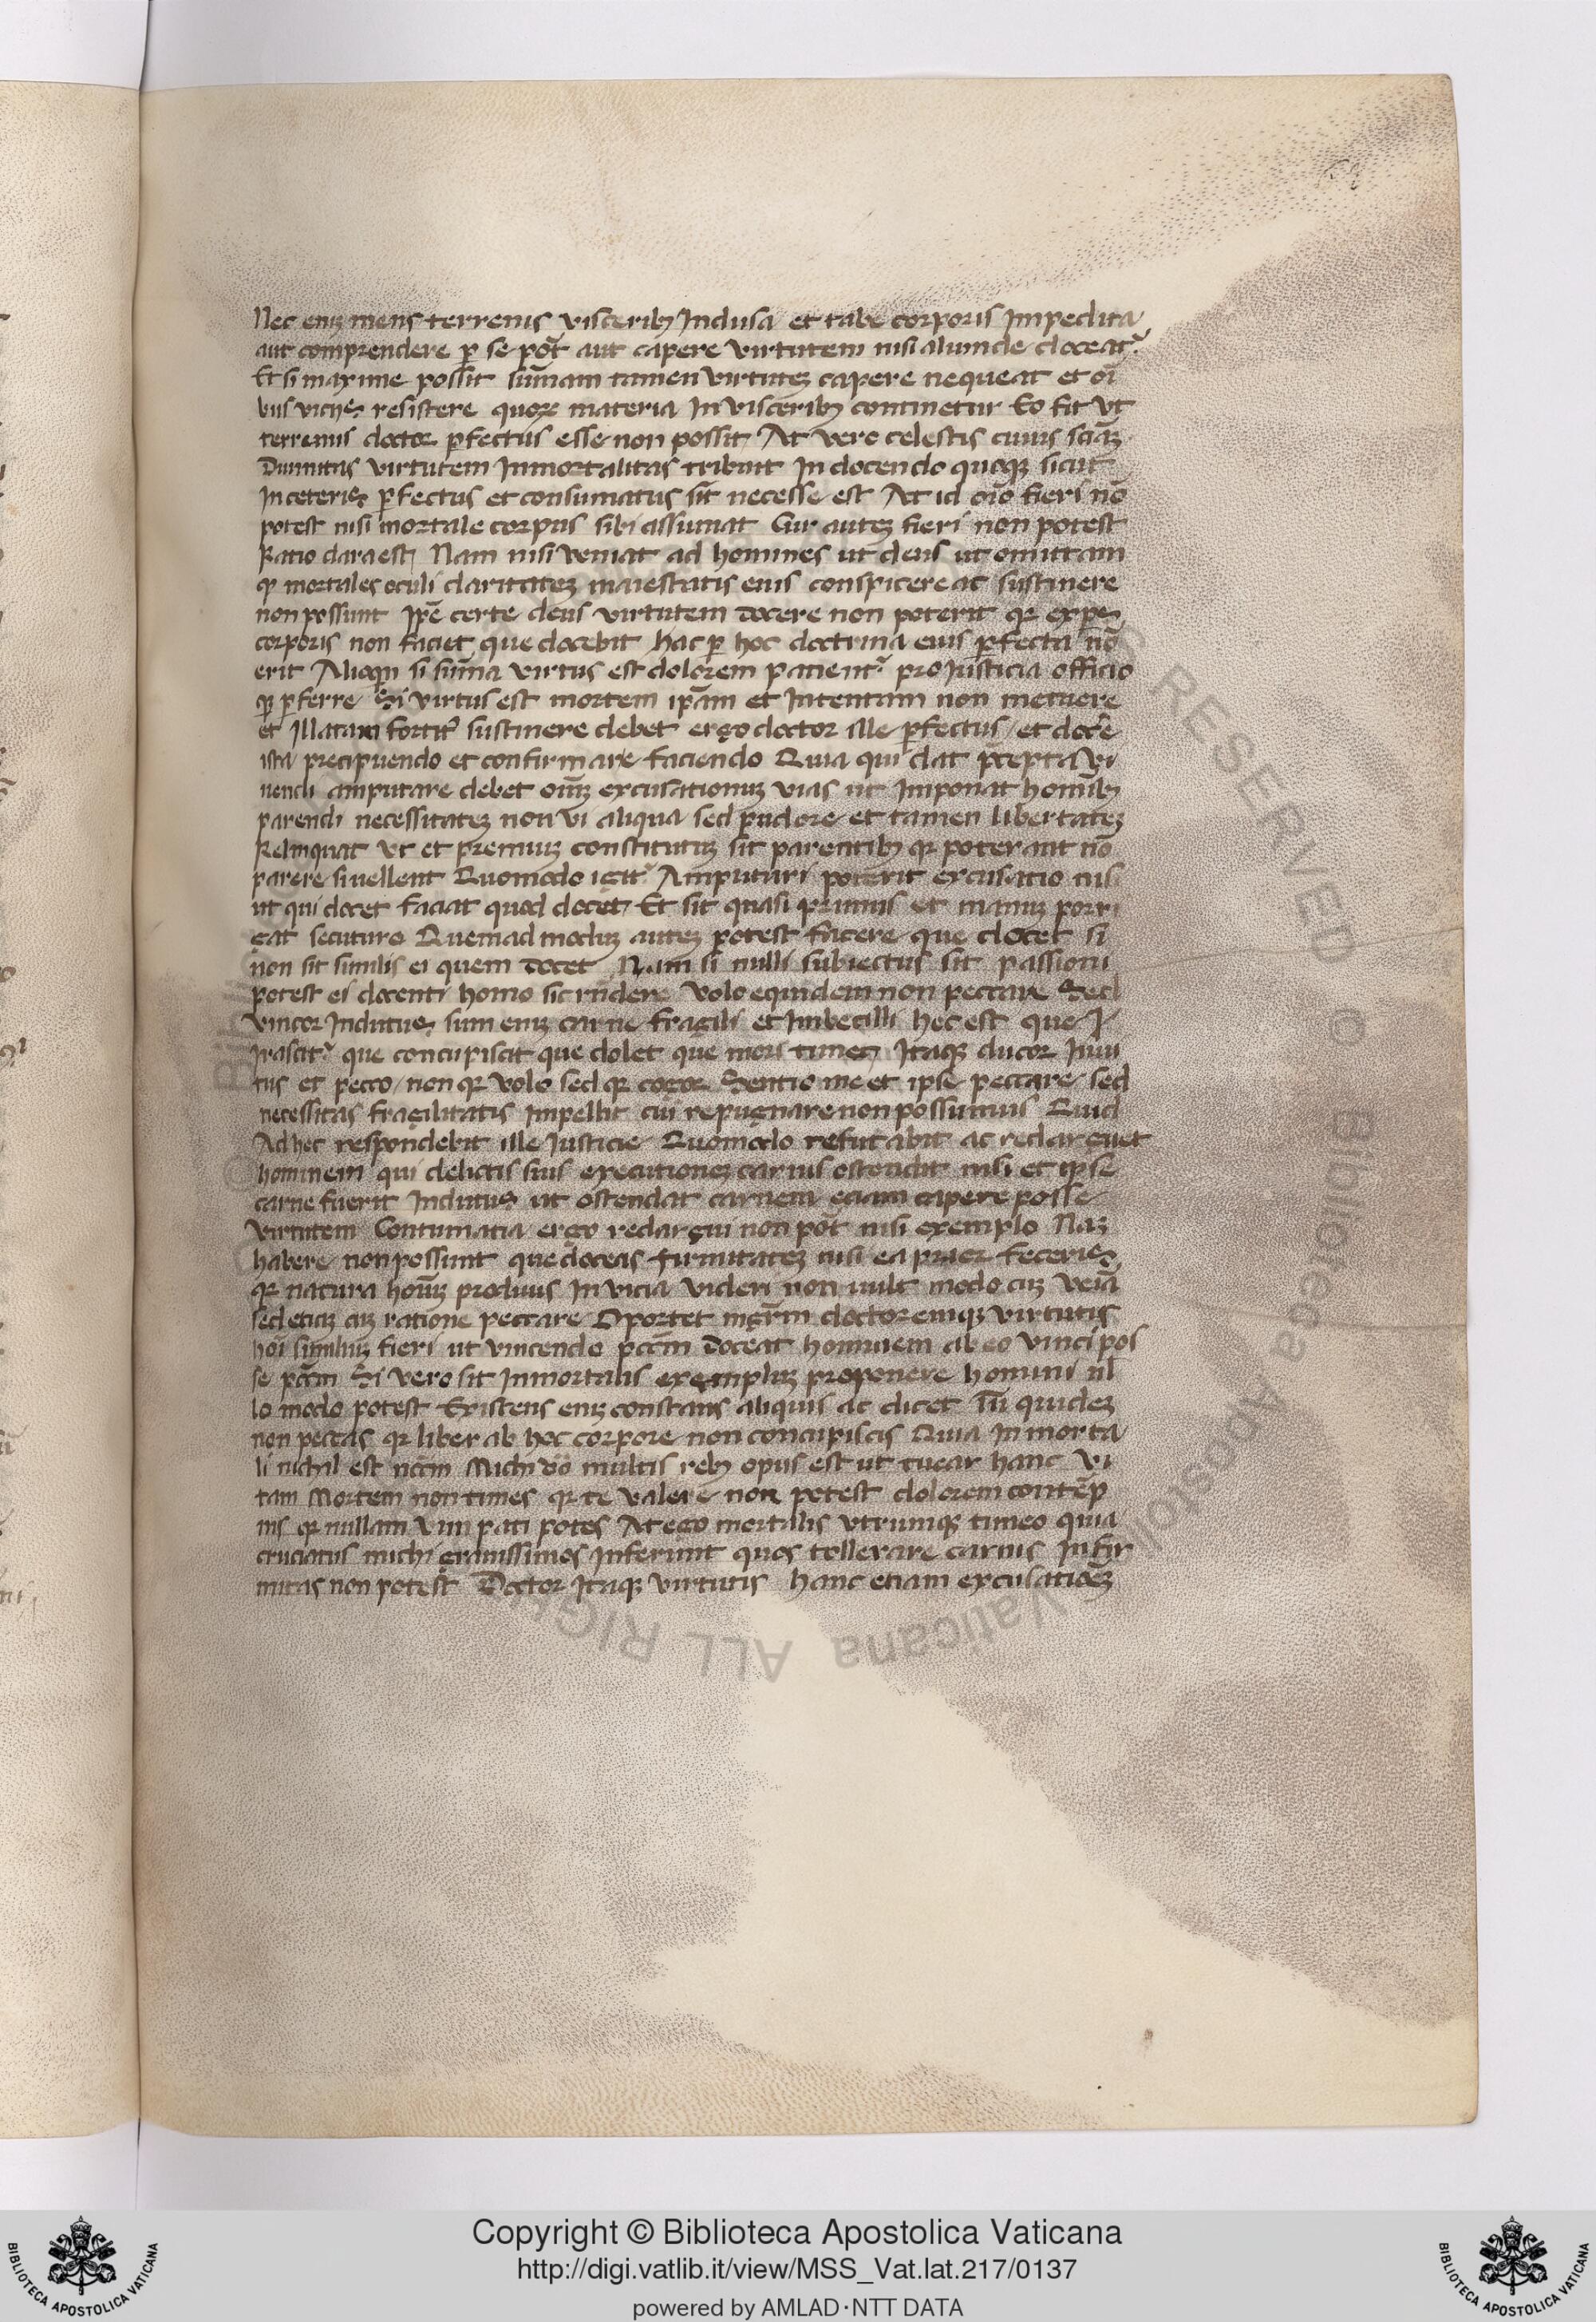 Nec enīȝ mens terrenis visceribȝ Indusa et tabe corporis Impedita
aut comprendere p̱ se pōt aut capere virtutem nisi aliunde doceat᷑
Et si maxime possit sūmam tamen virtuteȝ capere nequeat et oī
bus vicijs resistere quoꝝ materia In visceribȝ continetur Eo fit vt
terrenus doctor p̱fectus esse non possit At vero celestis cuius sciāȝ
Diuinitas virtutem Inmortalitas tribuit In docendo quoqȝ sicut
In ceteris p̱fectus et consumatus sit necesse est At id oīo fieri nō
potest nisi mortale corpus sibi assumat Cur auteȝ fieri non potest
Ratio clara est Nam nisi veniat ad homines ut deus ut omittam
ꝙ mortales oculi claritateȝ maiestatis eius conspicere ac sustinere
non possunt Ipē certe deus virtutem docere non poterit qꝛ expers
corporis non faciet que docebit hac p̱ hoc doctrina eius p̱fecta nō
erit Alioqn si sūma virtus est dolorem patient᷑ pro Iusticia officio
qꝫ p̱ferre Si virtus est mortem ip̄am et Intentam non metuere
et Illatam fortit᷑ sustinere debet ergo doctor ille p̱fectus et doce᷑
ista precipuendo et confirmare faciendo Quia qui dat p̄cepta vi
uendi amputare debet oīuȝ excusationuȝ vias ut Imponat homībȝ
parendi necessitateȝ non vi aliqua sed pudore et tamen libertateȝ
Relinquat vt et premiuȝ constitutuȝ sit parentibȝ qꝛ poterant nō
parere si vellent Quomodo igit᷑ Amputari poterit excusatio nisi
ut qui docet faciat quod docet Et sit quasi primus et manuȝ porri
gat secuturo Quemadmoduȝ auteȝ potest facere que docet si
non sit similis ei quem docet Nam si nulli subiectus sit passioni
potest ei docenti homo sic rn̄dere Volo equidem non peccare Sed
vincor Indutus sum enīȝ carne fragili et Imbecilli hec est que I
irascit᷑ que concupiscit que dolet que mori timet Itaqȝ ducor Inui
tus et pecco non qꝛ volo sed qꝛ cogor Sentio me et ipse peccare sed
necessitas fragilitatis Impellit cui repugnare non possumus Quid
Ad hec respondebit ille Iusticie Quomodo refutabit ac redarguet
hominem qui delictis suis executioneȝ carnis ostendit nisi et ipse
carne fuerit Indutus ut ostendat carnem eciam capere posse
virtutem Contumatia ergo redargui non pōt nisi exemplo Naȝ
habere non possunt que doceas firmitateȝ nisi ea prior feceris
qꝛ natura hoīuȝ procliuis In vicia videri non uult modo cuȝ veiā
sed etiaȝ cuȝ ratione peccare Oportet mgr̄m doctoremqȝ virtutis
hoī similluȝ fieri ut vincendo pccm̄ doceat hominem ab eo vinci pos
se pccm̄ Si vero sit Inmortalis exempluȝ proponere homini nl̄
lo modo potest Existens enīȝ constans aliquis ac dicet Tū quideȝ
non peccas qꝛ liber ab hoc corpore non concupiscis Quia Inmorta
li nichil est nccm̄ Michi v̄o multis rebȝ opus est ut tuear hanc vi
tam Mortem non times qꝛ te valere non potest dolorem contēp
nis qꝛ nullam vim pati potes At ego mortalis vtrumqȝ timeo quia
cruciatus michi grauissimos Inferunt quos tollerare carnis Infir
mitas non potest Doctor Itaqȝ virtutis hanc etiam excusatioēȝ
Copyright © Biblioteca Apostolica Vaticana
http://digi.vatlib.it/view/MSS_Vat.lat.217/0137
powered by AMLAD·NTT DATA
BIBLIOTECA APOSTOLICA VATICANA
BIBLIOTECA APOSTOLICA VATICANA